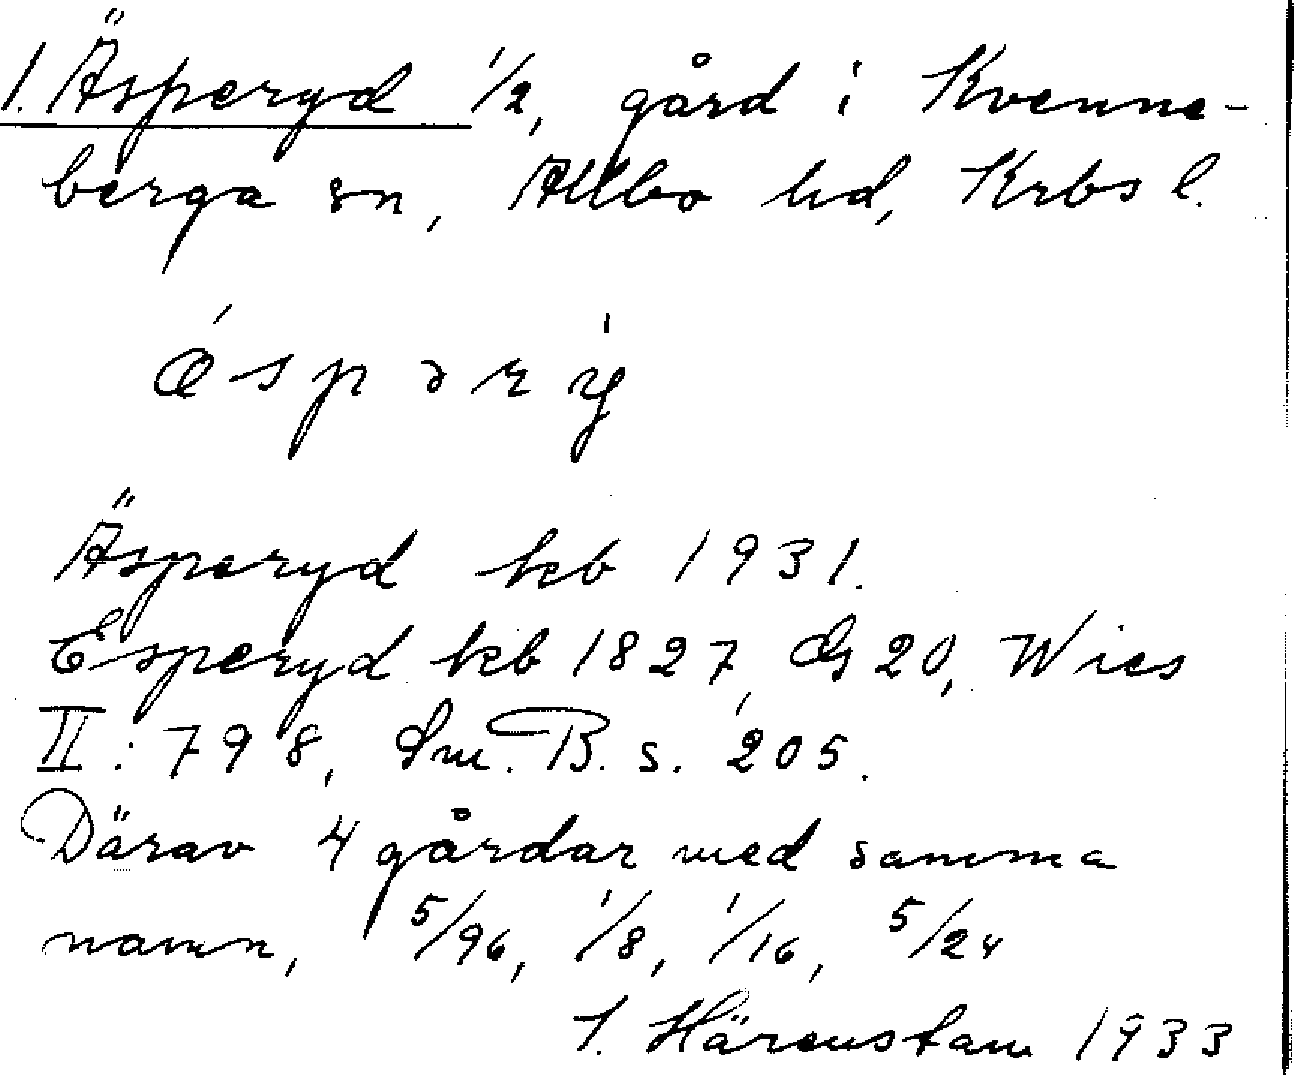 1. Äsperyd 1/2, gård i Kvenne-
berga sn, Allbo hd, Krbs l.
ǽspərẏ
Äsperyd kb 1931.
Esperyd kb 1827, G 20, Wies
II: 798, Sm. B. s. 205.
Därav 4 gårdar med samma
namn, 5/96, 1/8, 1/16, 5/24
Härenstam 1933